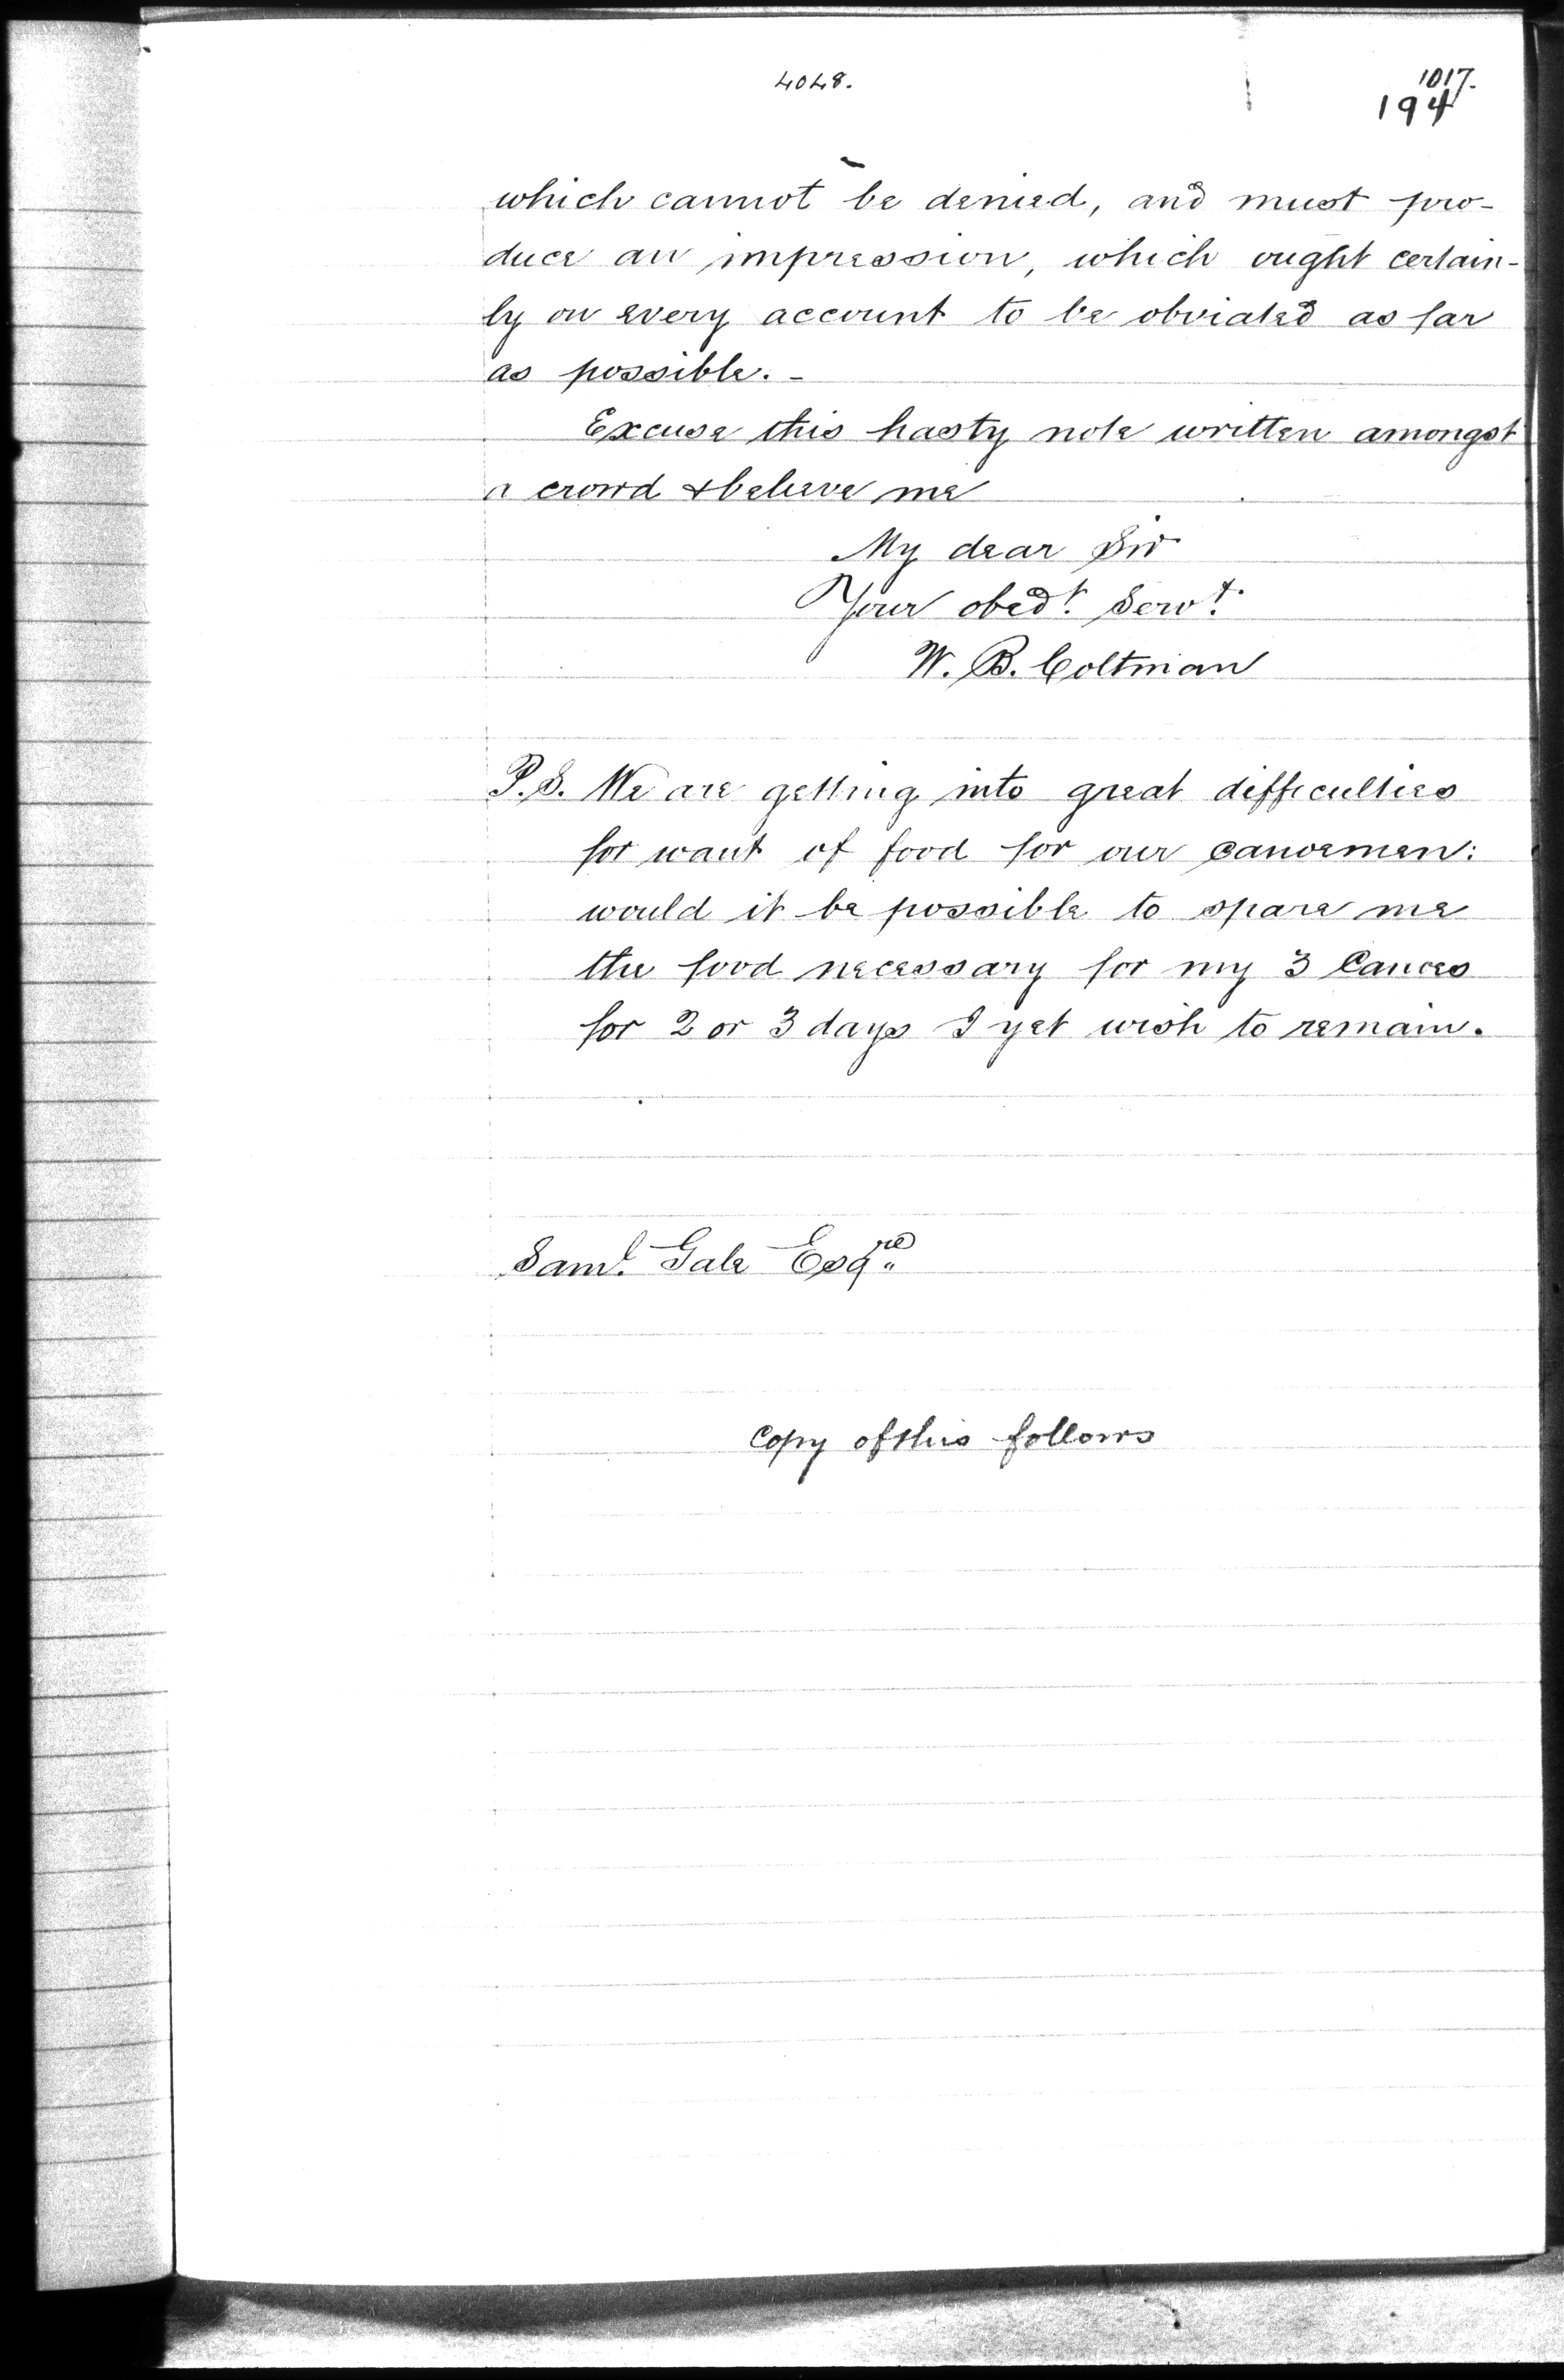 4048.
1017.
194
which cannot be denied, and must pro-
duce an impression, which ought certain-
ly on every account to be obviated as far
as possible. -
Excuse this hasty note written amongst
a crowd & believe me
My dear Sir
Your obedt. Servt.
W. B. Coltman
P.S. We are getting into great difficulties
for want of food for our canoemen:
would it be possible to spare me
the food necessary for my 3 Canoes
for 2 or 3 days I yet wish to remain.
Saml. Gale Esqre
Copy of this follows